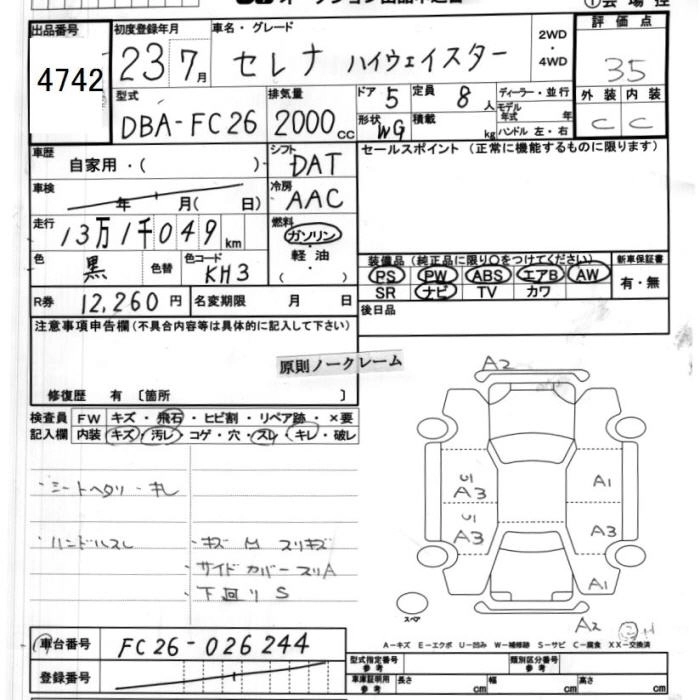 出品番号
4742
初度登録年月
23 7月
車名・グレード
セレナ ハイウェイスター
2WD
・
4WD
評価点
35
型式
DBA-FC26
排気量
2000cc
ドア 5
定員 8人
形状 WG
積載 kg
ディーラー・並行
モデル年式 年
ハンドル 左・右
外装 内装
C C
車歴
自家用・( )
シフト
DAT
セールスポイント(正常に機能するものに限ります)
車検
年 月( 日)
冷房
AAC
走行
13万1千049km
燃料
ガソリン
軽油
( )
色
黒
色替
色コード
KH3
装備品(純正品に限り○をつけてください)
PS PW ABS エアB AW
SR ナビ TV カワ
新車保証書
有・無
R券 12,260円
名変期限 月 日
後日品
注意事項申告欄(不具合内容等は具体的に記入して下さい)
原則ノークレーム
修復歴 有 〔箇所 〕
検査員
記入欄
FW キズ・飛石・ヒビ割・リペア跡・×要
内装 キズ・汚レ・コゲ・穴・スレ・キレ・破レ
・シートヘタリ・キレ
・ハンドルスレ
・キズ凹スリキズ
・サイドカバースリA
・下回りS
A2
U1
A3
A1
U1
A3
A3
A1
スペア
A2
A-キズ E-エクボ U-凹み W-補修跡 S-サビ C-腐食 XX-交換済
車台番号
FC26-026244
登録番号
型式指定番号
参考
類別区分番号
参考
車庫証明
参考
長さ cm 幅 cm 高さ cm